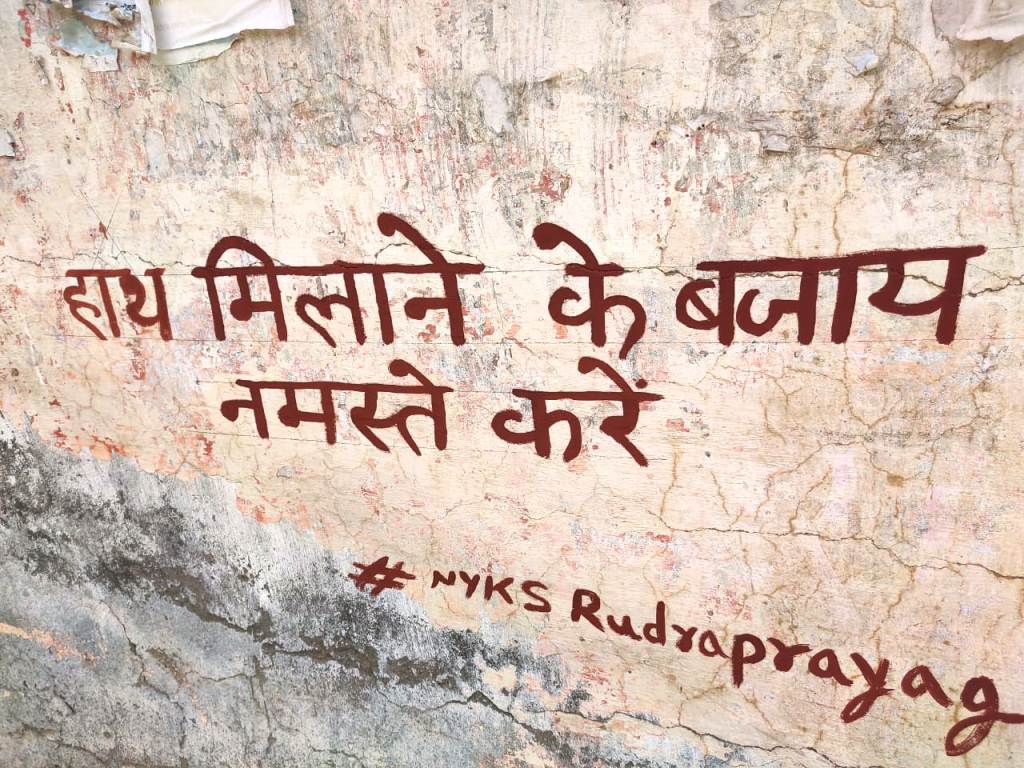 हाथ मिलाने के बजाय
नमस्ते करें
# NYKS Rudraprayag